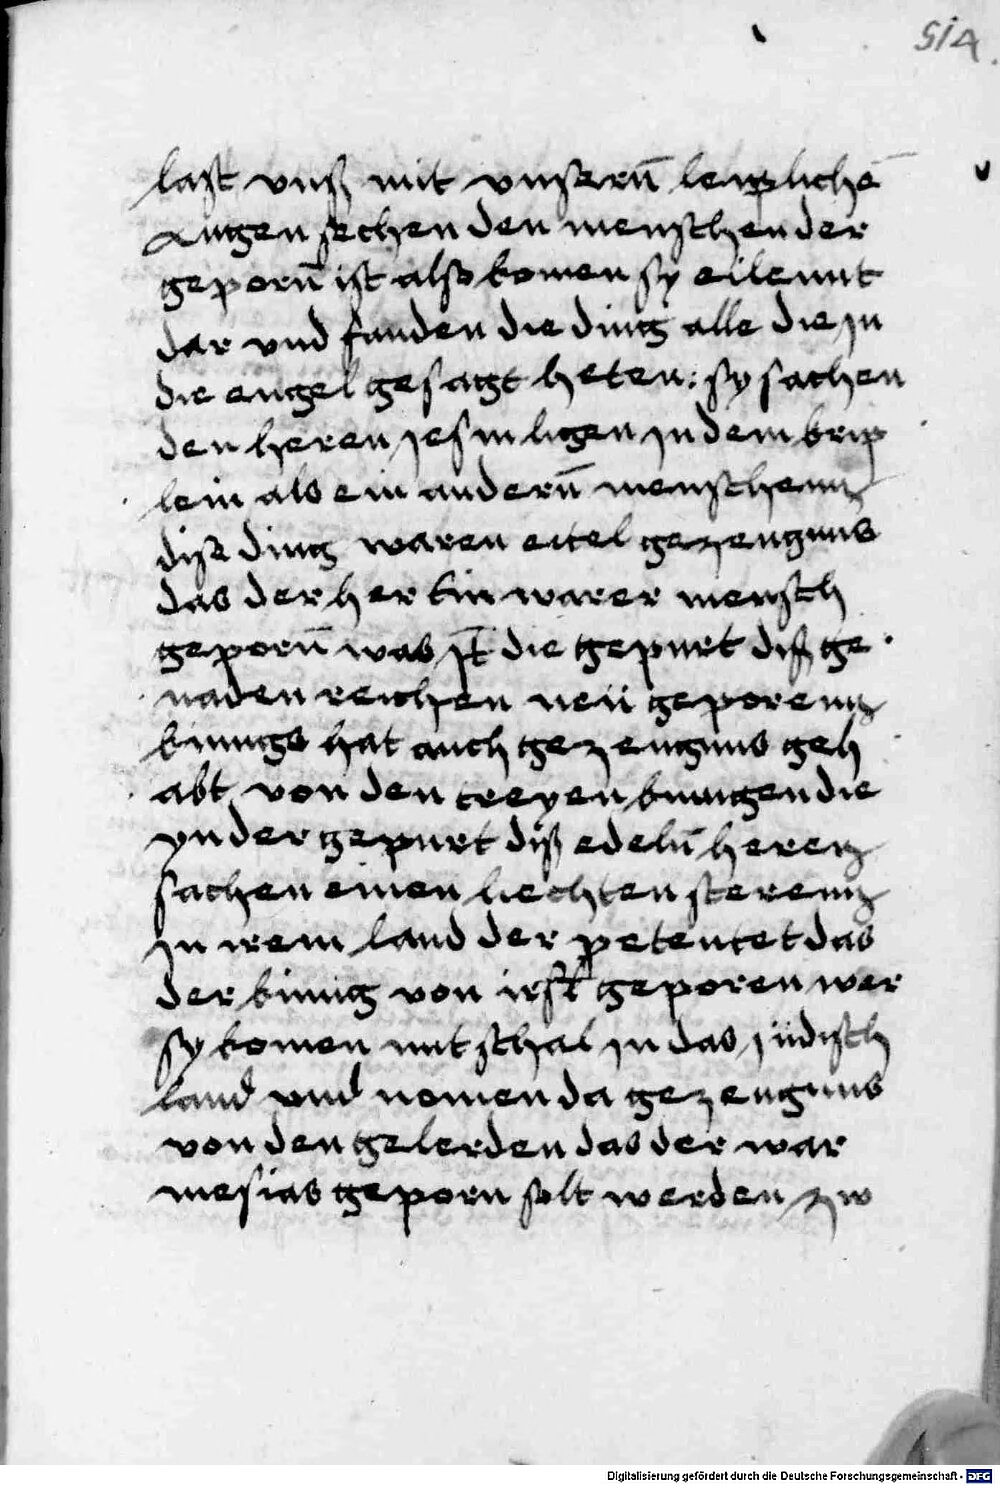 514.
last vnß mit vnsernn̄ leyplichē
Augen sechen den menschen der
geporn̄ ist also komen sy eilemt
dar vnd funden die ding alle die jn
die engel gesagt heten: sy sachen
den heren jesm ligen jn dem krip
lein als ein andern̄ menschenn
dise ding waren eitel gezeugnus
das der her kin warer mensch
geporn̄ was jt̄ die gepurt diß ge
naden reichen neü geporenn
kinngs hat auch gezeugnus geh
abt von den treyen kinngen die
yn der gepurt diß edeln̄ herenn
sachen einen liechten sterenn
jn irem land der petentet das
der kinnig von jrsl̄ geporen wer
sy komen mit schal jn das jüdisch
land vnd nomen da gezeugnus
von den gelerden das der war
mesias geporn solt werden zw
Digitalisierung gefördert durch die Deutsche Forschungsgemeinschaft - DFG